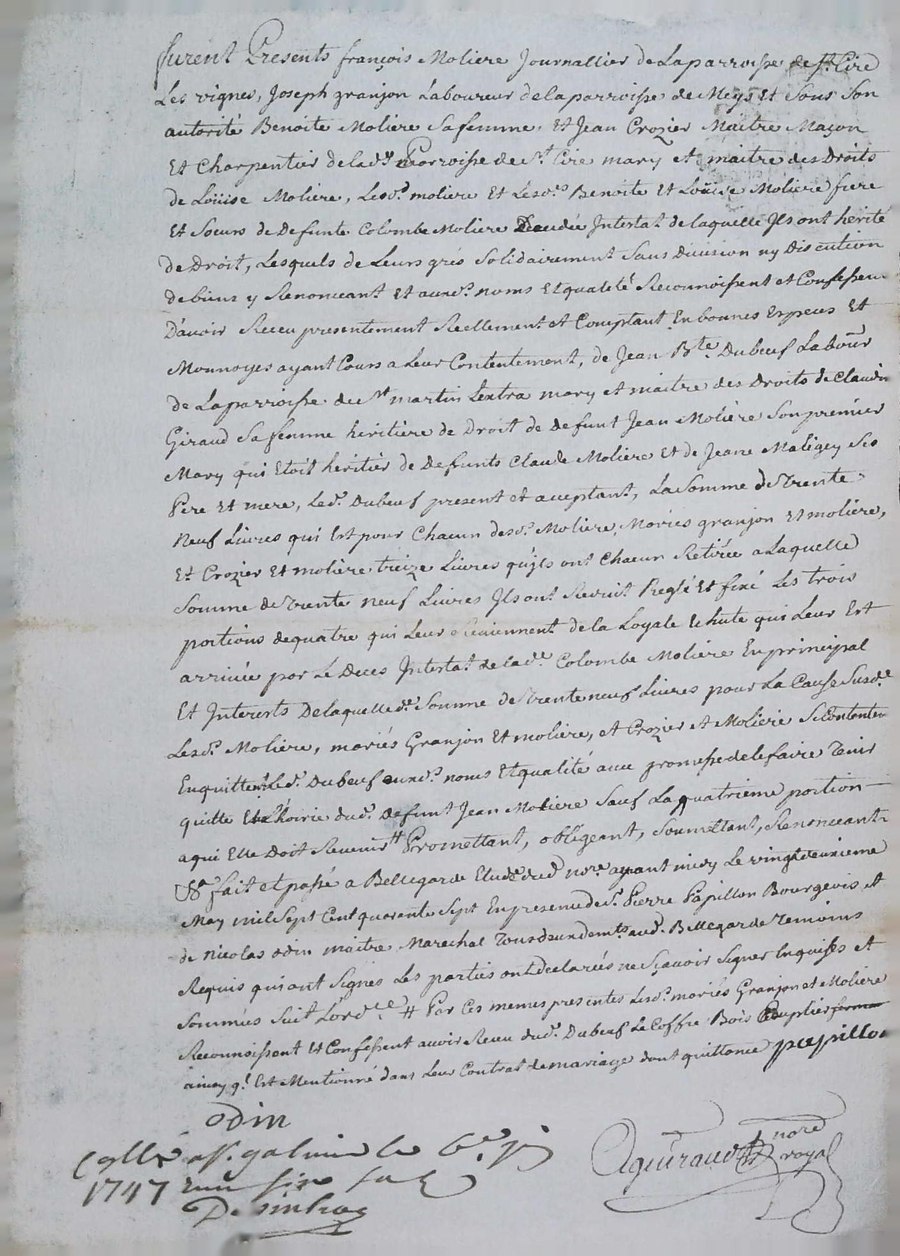 furent Presents françois Moliere Journallier de Laparroisse de St Cire
Les vignes, Joseph granjon Laboureur de la parroisse de Meys Et Sous Son
autorité Benoite Moliere Sa femme, Et Jean Crozier Maitre Maçon
Et Charpentier de lade. Parroisse de St. Cire mary Et maitre des Droits
de Loüise Moliere, Lesd. moliere Et Lesd.es Benoite Et Loüise Moliere frere
Et Soeurs de Defunte Colombe Moliere Decedée Intertat de laquelle Ils ont hérité
de Droit, Lesquels de Leurs grés Solidairement Sans Division ny Discution
de biens y Renonceant Et auxd. noms Et qualité Reconnoissent et Confessent
D'avoir Receu presentement Reellement et Comptant En bonnes Especes Et
Monnoyes ayant Cours a Leur Contentement, de Jean Bte. Dubeuf Labour
de Laparroisse de St martin Lextra mary et maitre des Droits de Claudin
Giraud Sa femme heritiere de Droit de defunt Jean Moliere Son premier
Mary qui Etoit heritier de Defunts Claude Moliere Et de Jeane Malegey Ses
Pere Et mere, Led. Dubeuf present et acceptant, La Somme de Trente
Neuf Livres qui Est pour Chacun desd. Moliere, Mariés granjon Et moliere,
Et Crozier Et moliere treize Livres qu'ils ont Chacun Retirée a Laquelle
Somme de Trente neuf Livres Ils ont Reduit Reglé Et fixé Les trois
portions de quatre qui Leur de la Loyale Echute qui Leur Est
arrivée par Le Deces Intertat de lade. Colombe Moliere En principal
Et Interests De laquelle de. Somme de Trente neuf Livres pour La Cause Susde.
Lesd. Moliere, mariés Granjon Et moliere, et Crozier Et Moliere Se Contentent
En quittent Led. Dubeuf auxd. noms Et qualité avec promesse de le faire Tenir
quitte Et L'hoirie dud. Defunt Jean Moliere Sauf La quatrieme portion
a qui Elle Doit Revenir # Promettant, obligeant, Soumettant, Renonceant
fait et passé a Bellegarde Etude dud nore. avant midy Le vingt deuxieme
May mil Sept Cent quarante Sept En presence de Sr. Pierre Papillon Bourgeois Et
de Nicolas Odin maitre Marechal Tous deux audt. Bellegarde Temoins
Requis qui ont Signés Les parties ont declarées ne Sçavoir Signer Enquises Et
Sommées Suit Lordce # Par Ces memes presentes Lesd. mariés Granjon et Moliere
Reconnoissent Et Confessent avoir Receu dud. Dubeuf Le Coffre Bois Peuplier ferma
ainsy q. Est Mentionné dans Leur Contrat de mariage dont quittance papillon
odin
a St. galmier le 6e
1747
Aguiraud nore royal